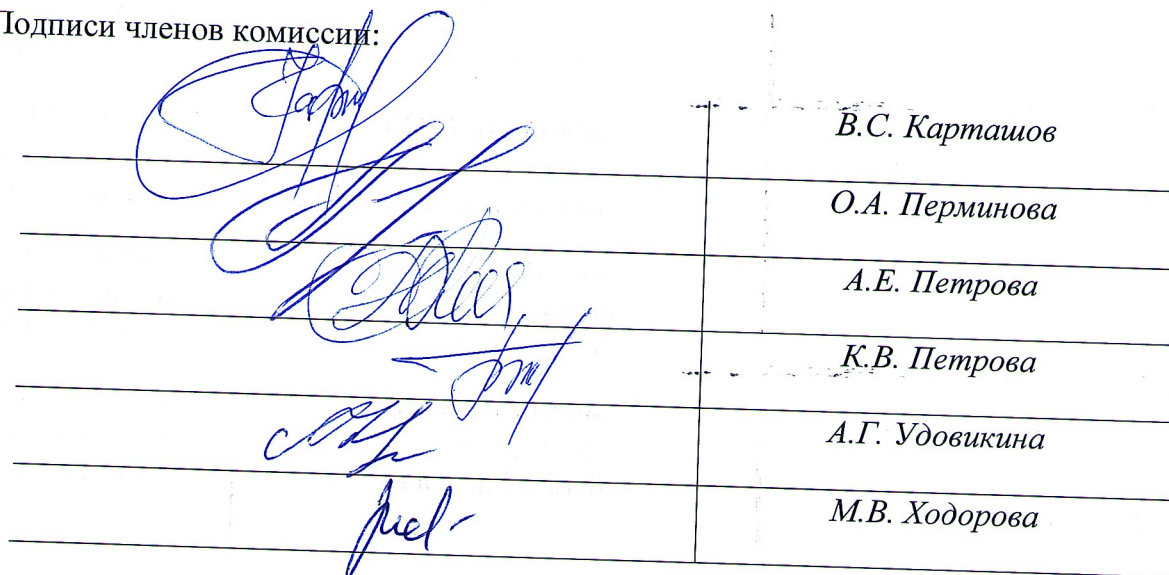 Подписи членов комиссии:
В.С. Карташов
О.А. Перминова
А.Е. Петрова
К.В. Петрова
А.Г. Удовикина
М.В. Ходорова